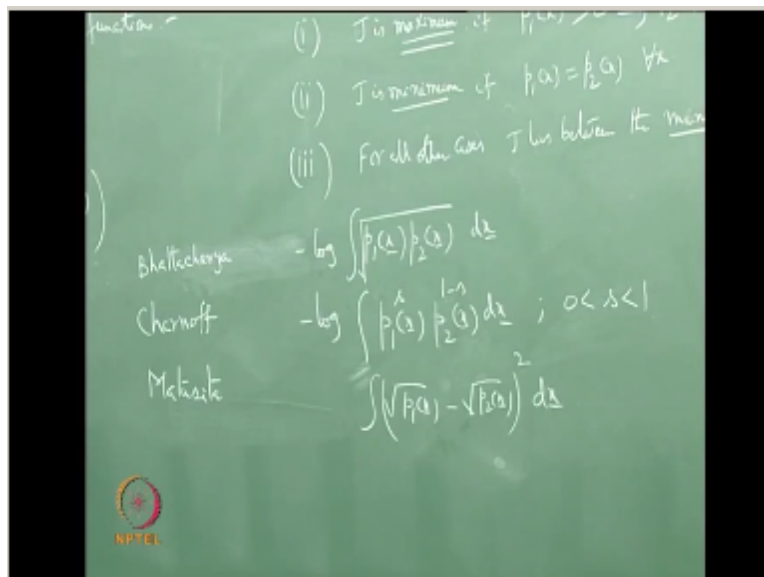 function:-
(i) J is maximum if p₁(x)
(ii) J is minimum if p₁(x) = p₂(x) ∀x
(iii) For all other cases J lies between the
)
Bhattacharya -log ∫√p₁(x) p₂(x) dx
Chernoff -log ∫ p₁ˢ(x) p₂¹⁻ˢ(x) dx ; 0 < s < 1
Matusita ∫(√p₁(x) - √p₂(x))² dx
NPTEL